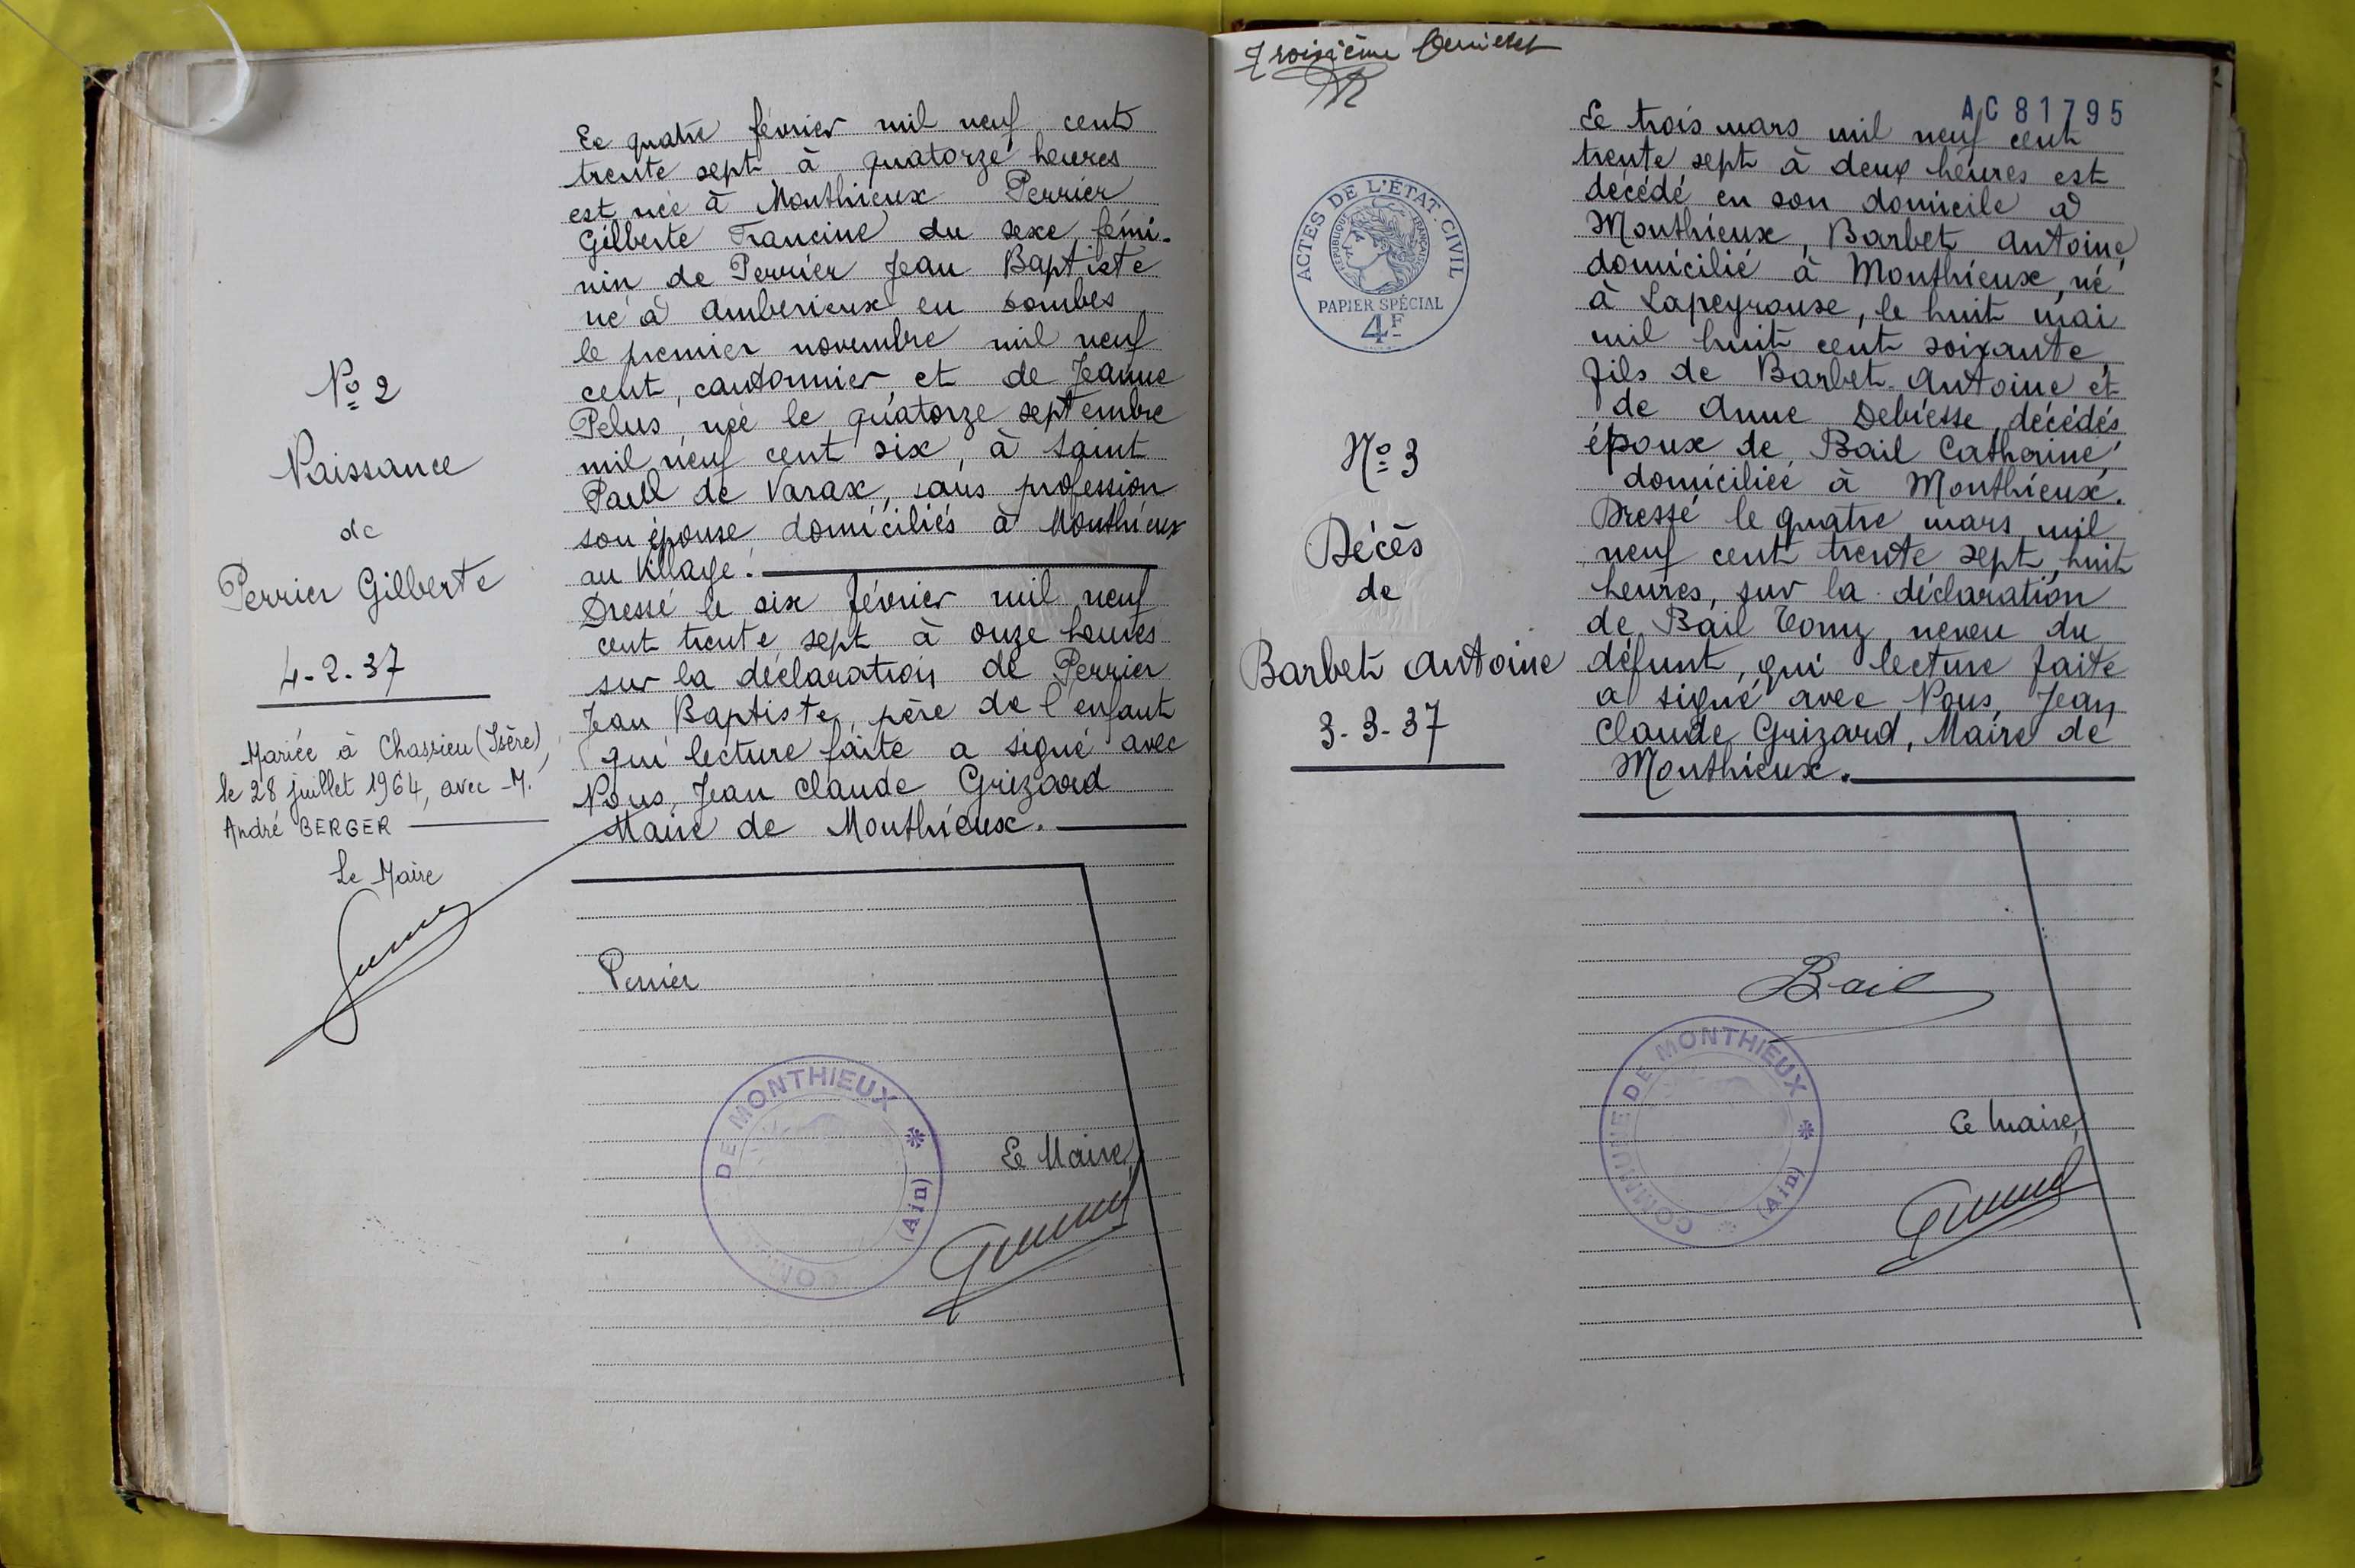 Nº 2
Naissance
de
Perrier Gilberte
4-2-37
Mariée à Chassieu (Isère),
le 28 juillet 1964, avec M.
André BERGER
Le Maire
Le quatre février mil neuf cent
trente sept à quatorze heures
est née à Monthieux Perrier
Gilberte Francine du sexe fémi-
nin de Perrier Jean Baptiste
né à Amberieux en Dombes
le premier novembre mil neuf
cent, cantonnier et de Jeanne
Pelus, née le quatorze septembre
mil neuf cent six, à Saint
Paul de Varax, sans profession
son épouse, domiciliés à Monthieux
au Village.
Dressé le six février mil neuf
cent trente sept à onze heures
sur la déclaration de Perrier
Jean Baptiste, père de l'enfant
qui lecture faite a signé avec
Nous, Jean Claude Grizard
Maire de Monthieux.
Perrier
DE MONTHIEUX
(Ain)
Le Maire,
Troisième feuillet
AC 81795
ACTES DE L'ÉTAT-CIVIL
RÉPUBLIQUE FRANÇAISE
PAPIER SPÉCIAL
4F
Nº 3
Décès
de
Barbet Antoine
3-3-37
Le trois mars mil neuf cent
trente sept à deux heures est
décédé en son domicile à
Monthieux, Barbet Antoine,
domicilié à Monthieux, né
à Lapeyrouse, le huit mai
mil huit cent soixante,
fils de Barbet Antoine et
de Anne Debiesse, décédés
époux de Bail Catherine,
domiciliée à Monthieux.
Dressé le quatre mars mil
neuf cent trente sept, huit
heures, sur la déclaration
de Bail Tony, neveu du
défunt, qui lecture faite
a signé avec Nous, Jean
Claude Grizard, Maire de
Monthieux.
Bail
COMMUNE DE MONTHIEUX
(Ain)
Le Maire,